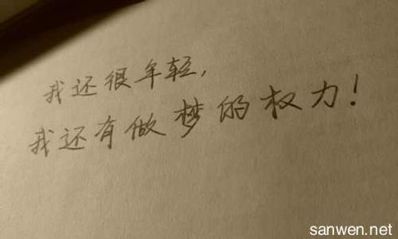 我还很年轻,
我还有做梦的权力!
sanwen.net